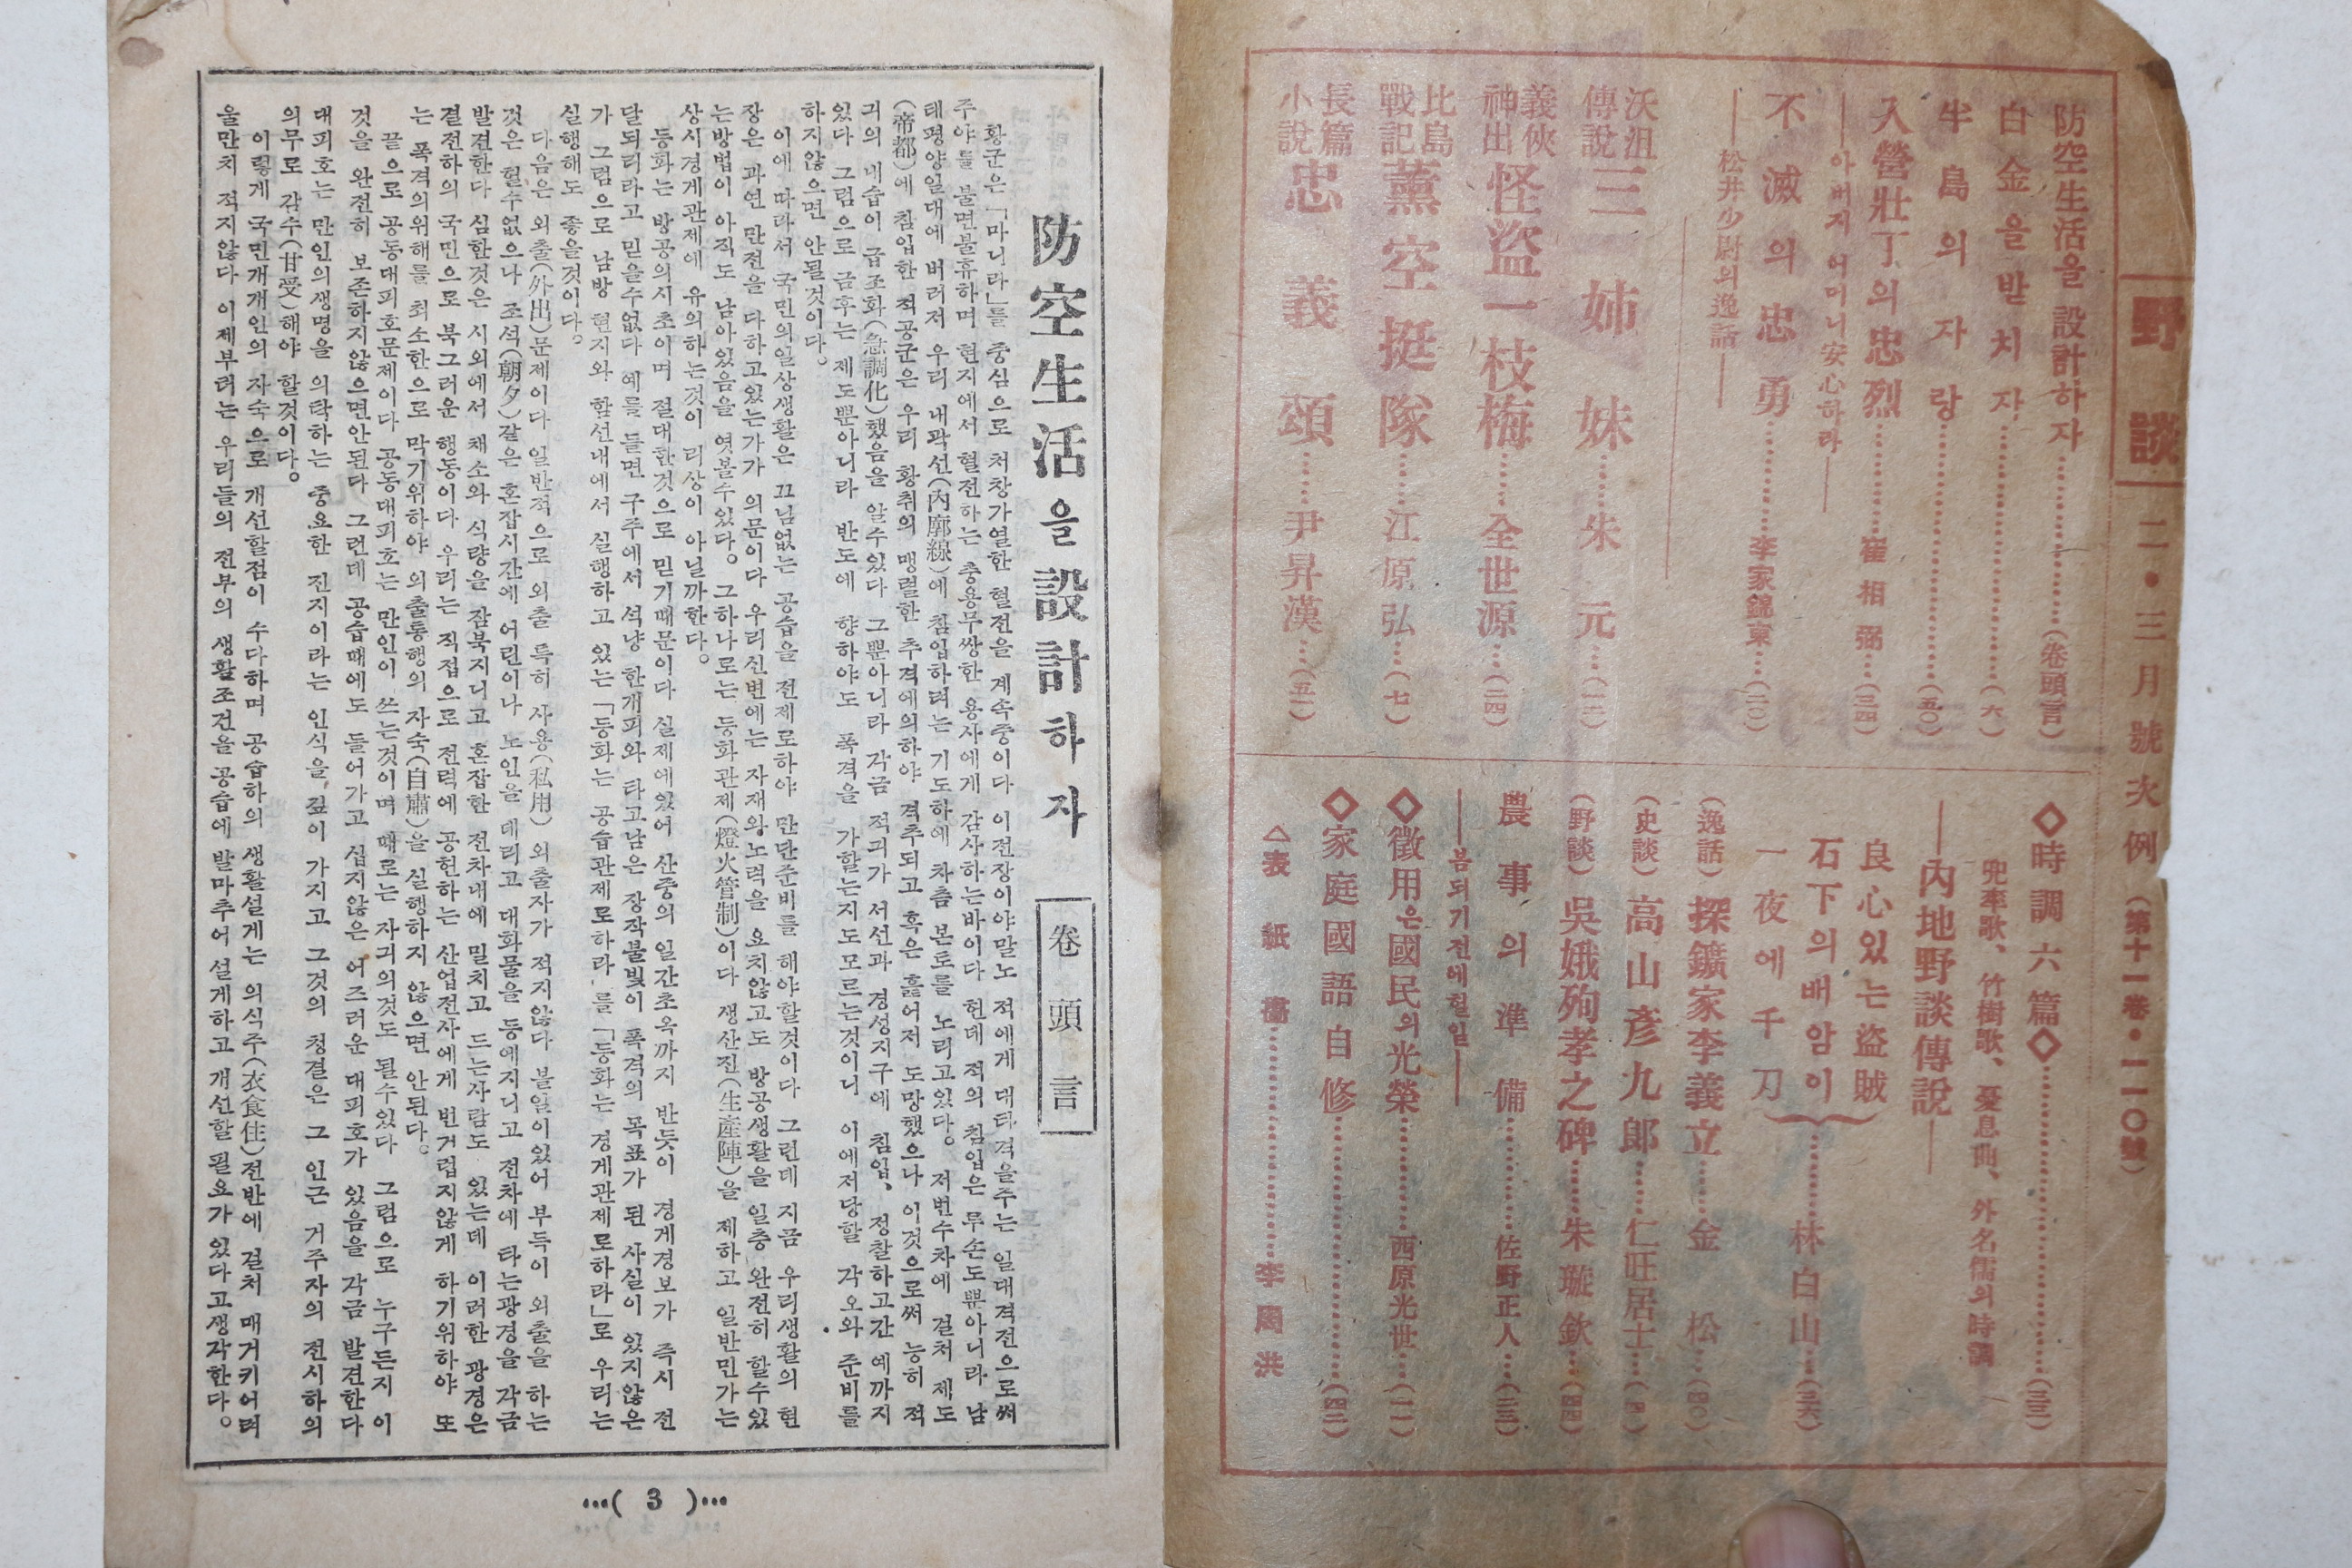 野談 二•三月號次例 (第十一卷•一一〇號)
防空生活을 設計하자……(卷頭言)
白金을받치자……(六)
半島의자랑……(五〇)
入營壯丁의忠烈……崔相弼……(三四)
——아버지 어머니安心하라——
不滅의忠勇……李家錦東……(二〇)
——松井少尉의逸話——
沃沮傳說 三姉妹……朱元……(一二)
義俠神出 怪盜一枝梅……全世源……(二四)
比島戰記 薰空挺隊……江原弘……(七)
長篇小說 忠義頌……尹昇漢……(五一)
◇時調六篇◇……(三三)
兜率歌、竹樹歌、憂息曲、外名儒의時調
——內地野談傳說——
良心있는盜賊
石下의배암이
一夜에千刀
……林白山……(三六)
(逸話) 探鑛家李義立……金松……(四〇)
(史談) 高山彥九郎……仁旺居士……(四一)
(野談) 吳娥殉孝之碑……朱璇欽……(四四)
農事의準備……佐野正人……(二三)
——봄되기전에헐일——
◇徵用은國民의光榮……西原光世……(二一)
◇家庭國語自修……(四二)
△表紙畵……李周洪
防空生活을設計하자
卷頭言
황군은「마니라」를 중심으로 처창가열한 혈전을 계속중이다 이전장이야말노 적에게 대타격을주는 일대격전으로써
주야를 불면불휴하며 현지에서 혈전하는 충용무쌍한 용사에게 감사하는바이다 헌데 적의 침입은 루손도뿐아니라 남
태평양일대에 버러저 우리 내곽선(內廓線)에 침입하려는 기도하에 차츰 본토를 노리고있다。 저번수차에 걸처 제도
(帝都)에 침입한 적공군은 우리 황취의 맹렬한 추격에의하야 격추되고 혹은 흝어저 도망했으나 이것으로써 능히 적
긔의 내습이 급조화(急調化)했음을 알수있다 그뿐아니라 각금 적긔가 서선과 경성지구에 침입、 정찰하고간 예까지
있다 그럼으로 금후는 제도뿐아니라 반도에 향하야도 폭격을 가할는지도모르는것이니 이에저당할 각오와 준비를
하지않으면 안될것이다。
이에 따라서 국민의일상생활은 끄님없는 공습을 전제로하야 만단준비를 해야할것이다 그런데 지금 우리생활의 현
장은 과연 만전을 다하고있는가가 의문이다 우리신변에는 자재와노력을 요치않고도 방공생활을 일층 완전히 할수있
는방법이 아직도 남아있음을 엿볼수있다。 그하나로는 등화관제(燈火管制)이다 생산진(生產陣)을 제하고 일반민가는
상시경게관제에 유의하는것이 리상이 아닐까한다。
등화는 방공의시초이며 절대한것으로 믿기때문이다 실제에있어 산중의 일간초옥까지 반듯이 경게경보가 즉시 전
달되리라고 믿을수없다 예를 들면 구주에서 석냥 한개피와 타고남은 장작불빛이 폭격의 목표가 된 사실이 있지않은
가 그럼으로 남방 현지와 함선내에서 실행하고 있는「등화는 공습관제로하라 를「등화는 경게관제로하라」로 우리는
실행해도 좋을것이다。
다음은 외출(外出)문제이다 일반적으로 외출 특히 사용(私用) 외출자가 적지않다 볼일이있어 부득이 외출을 하는
것은 헐수없으나 조석(朝夕)같은 혼잡시간에 어린이나 노인을 데리고 대화물을 등에지니고 전차에 타는광경을 각금
발견한다 심한것은 시외에서 채소와 식량을 잠북지니고 혼잡한 전차내에 밀치고 드는사람도 있는데 이러한 광경은
결전하의 국민으로 북그러운 행동이다 우리는 직접으로 전력에 공헌하는 산업전사에게 번거럽지않게 하기위하야 또
는 폭격의위해를 최소한으로 막기위하야 외출통행의 자숙(自肅)을 실행하지 않으면 안된다。
끝으로 공동대피호문제이다 공동대피호는 만인이 쓰는것이며 때로는 자긔의것도 될수있다 그럼으로 누구든지 이
것을 완전히 보존하지않으면안된다 그런데 공습때에도 들어가고 섭지않은 어즈러운 대피호가 있음을 각금 발견한다
대피호는 만인의생명을 의탁하는 중요한 진지이라는 인식을 깊이 가지고 그것의 청결은 그 인근 거주자의 전시하의
의무로 감수(甘受)해야 할것이다。
이렇게 국민개개인의 자숙으로 개선할점이 수다하며 공습하의 생활설게는 의식주(衣食住)전반에 걸처 매거키어려
울만치 적지않다 이제부터는 우리들의 전부의 생활조건을 공습에 발마추어 설게하고 개선할 필요가 있다고생각한다。
…( 3 )…